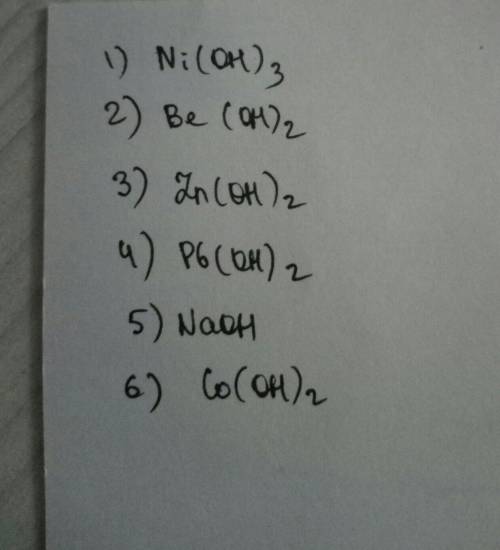 1) Ni(OH)3
2) Be (OH)2
3) Zn(OH)2
4) Pb(OH)2
5) NaOH
6) Co(OH)2